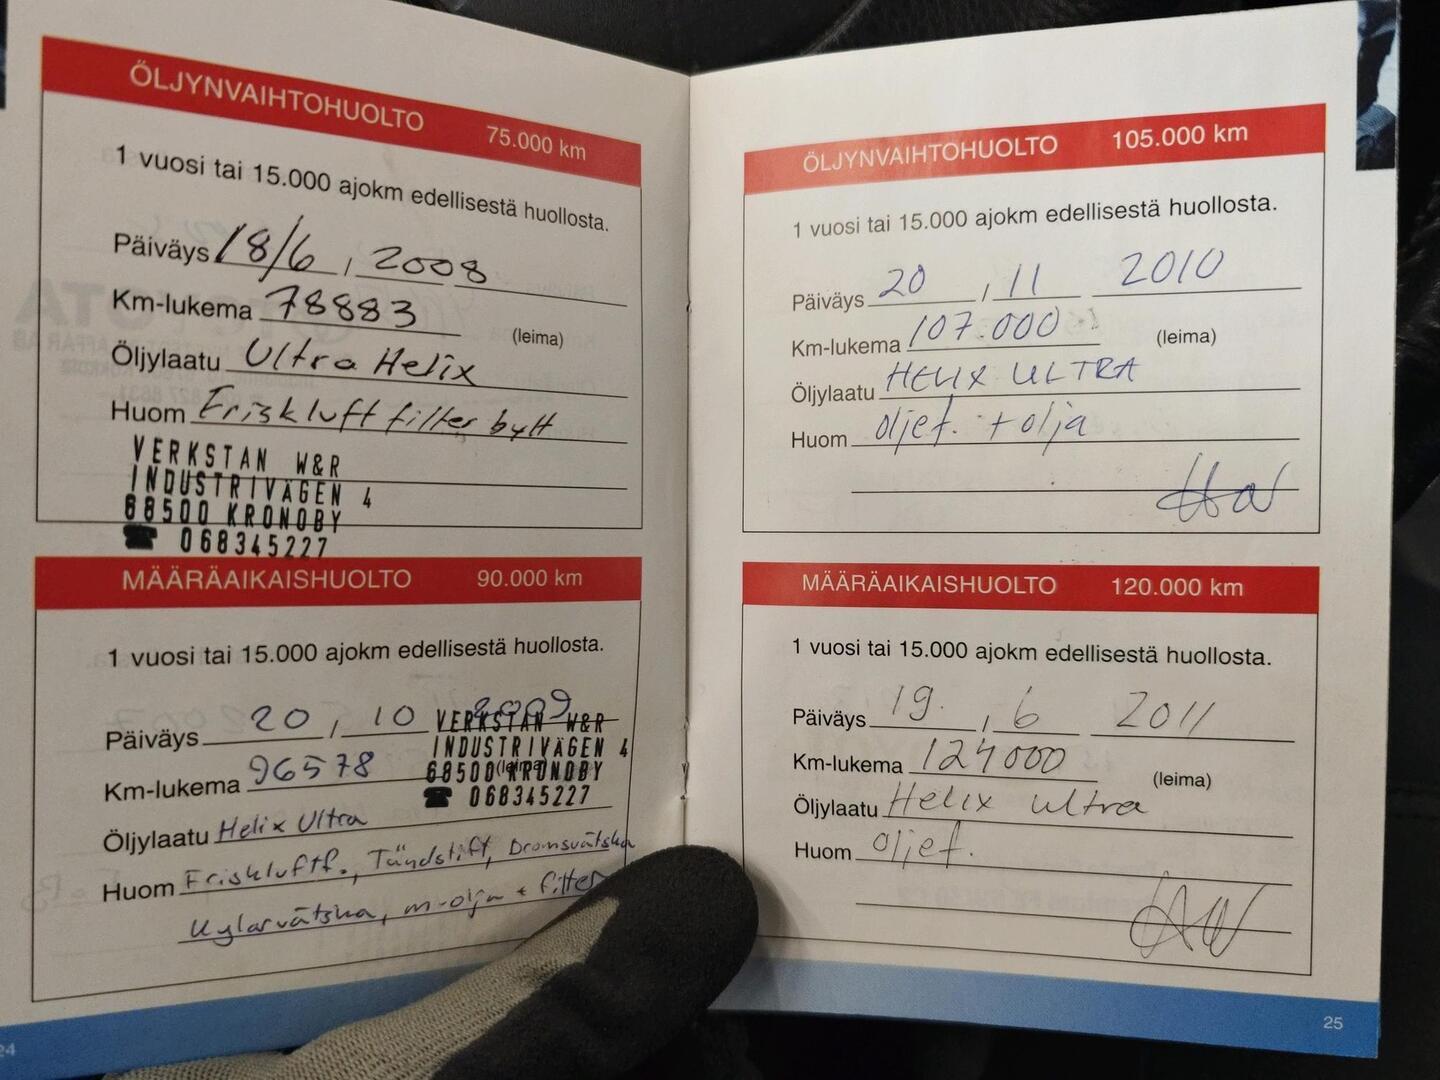 ÖLJYNVAIHTOHUOLTO 75.000 km
1 vuosi tai 15.000 ajokm edellisestä huollosta.
Päiväys 18/6 , 2008
Km-lukema 78883
(leima)
Öljylaatu Ultra Helix
Huom Friskluftfilter bytt
VERKSTAN W&R
INDUSTRIVÄGEN 4
68500 KRONOBY
☎ 068345227
MÄÄRÄAIKAISHUOLTO 90.000 km
1 vuosi tai 15.000 ajokm edellisestä huollosta.
Päiväys 20 , 10 2009
VERKSTAN W&R
INDUSTRIVÄGEN 4
Km-lukema 96578
(leima)
68500 KRONOBY
☎ 068345227
Öljylaatu Helix Ultra
Huom Friskluftf., Tändstift, Bromsvätska
Kylarvätska, m-olja + filter
24
ÖLJYNVAIHTOHUOLTO 105.000 km
1 vuosi tai 15.000 ajokm edellisestä huollosta.
Päiväys 20 , 11 2010
Km-lukema 107.000
(leima)
Öljylaatu HELIX ULTRA
Huom oljef. + olja
MÄÄRÄAIKAISHUOLTO 120.000 km
1 vuosi tai 15.000 ajokm edellisestä huollosta.
Päiväys 19. , 6 2011
Km-lukema 124000
(leima)
Öljylaatu Helix ultra
Huom oljef.
25